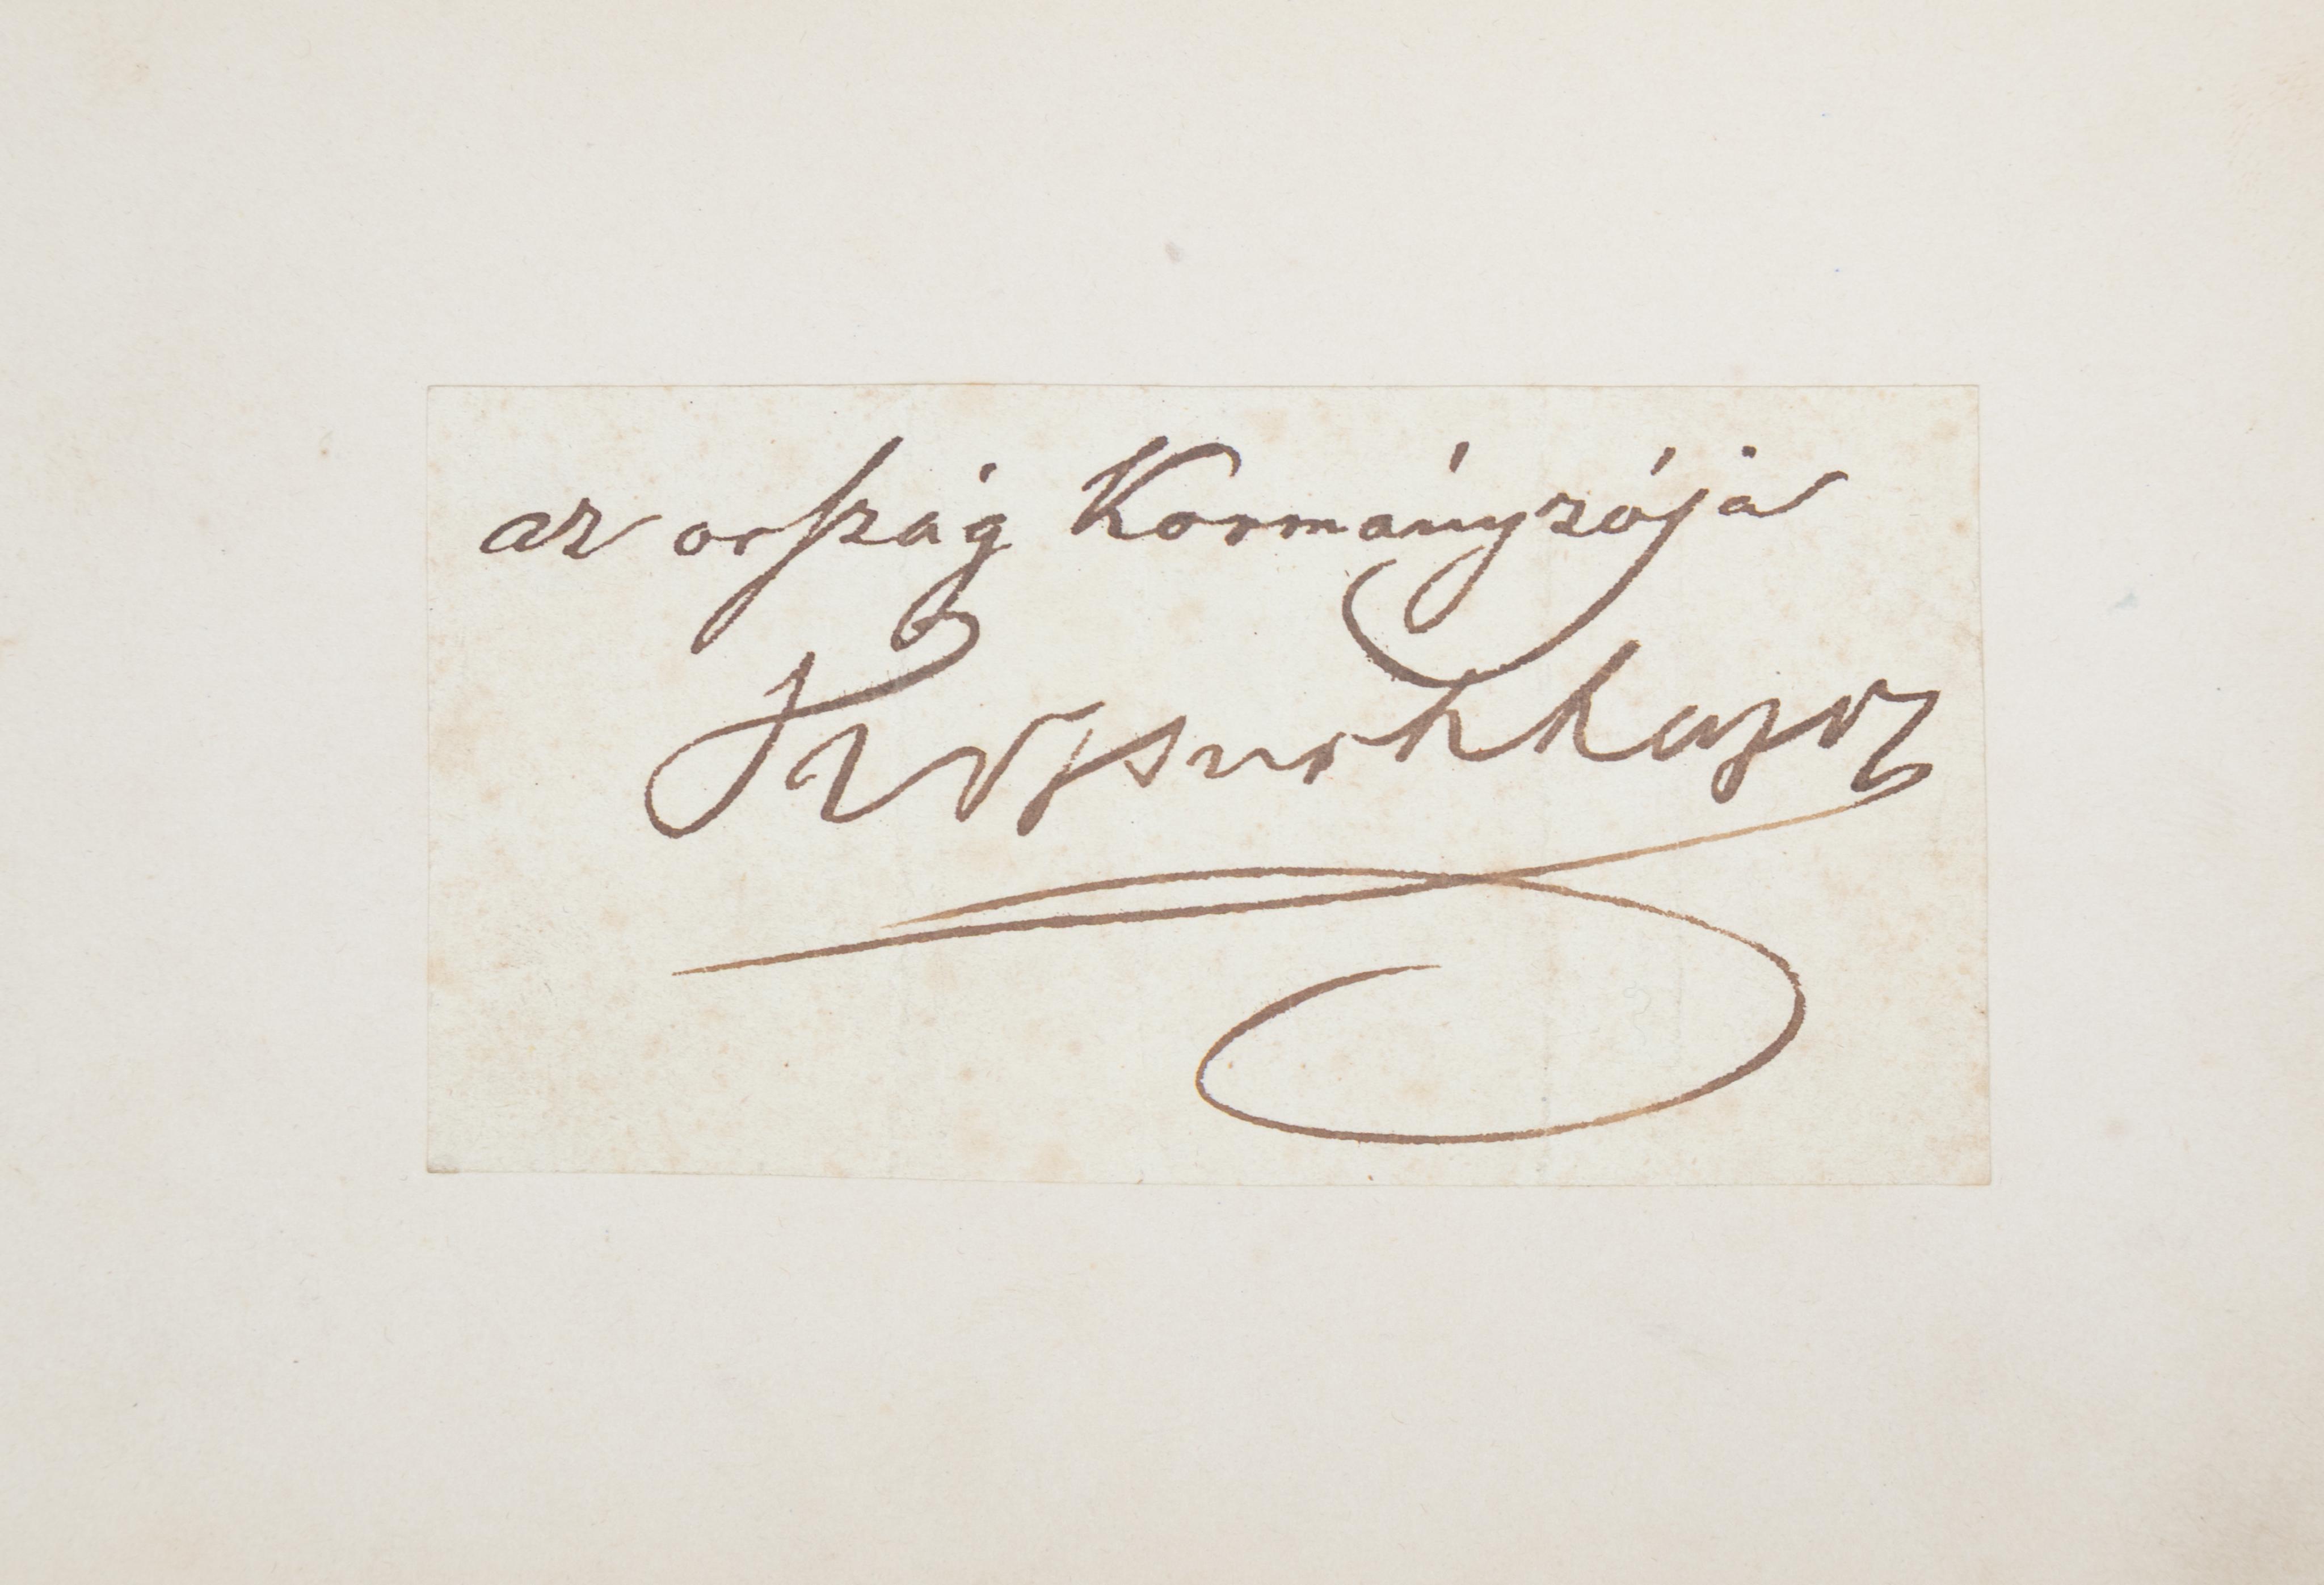 az ország Kormányzója
Kossuth Lajos